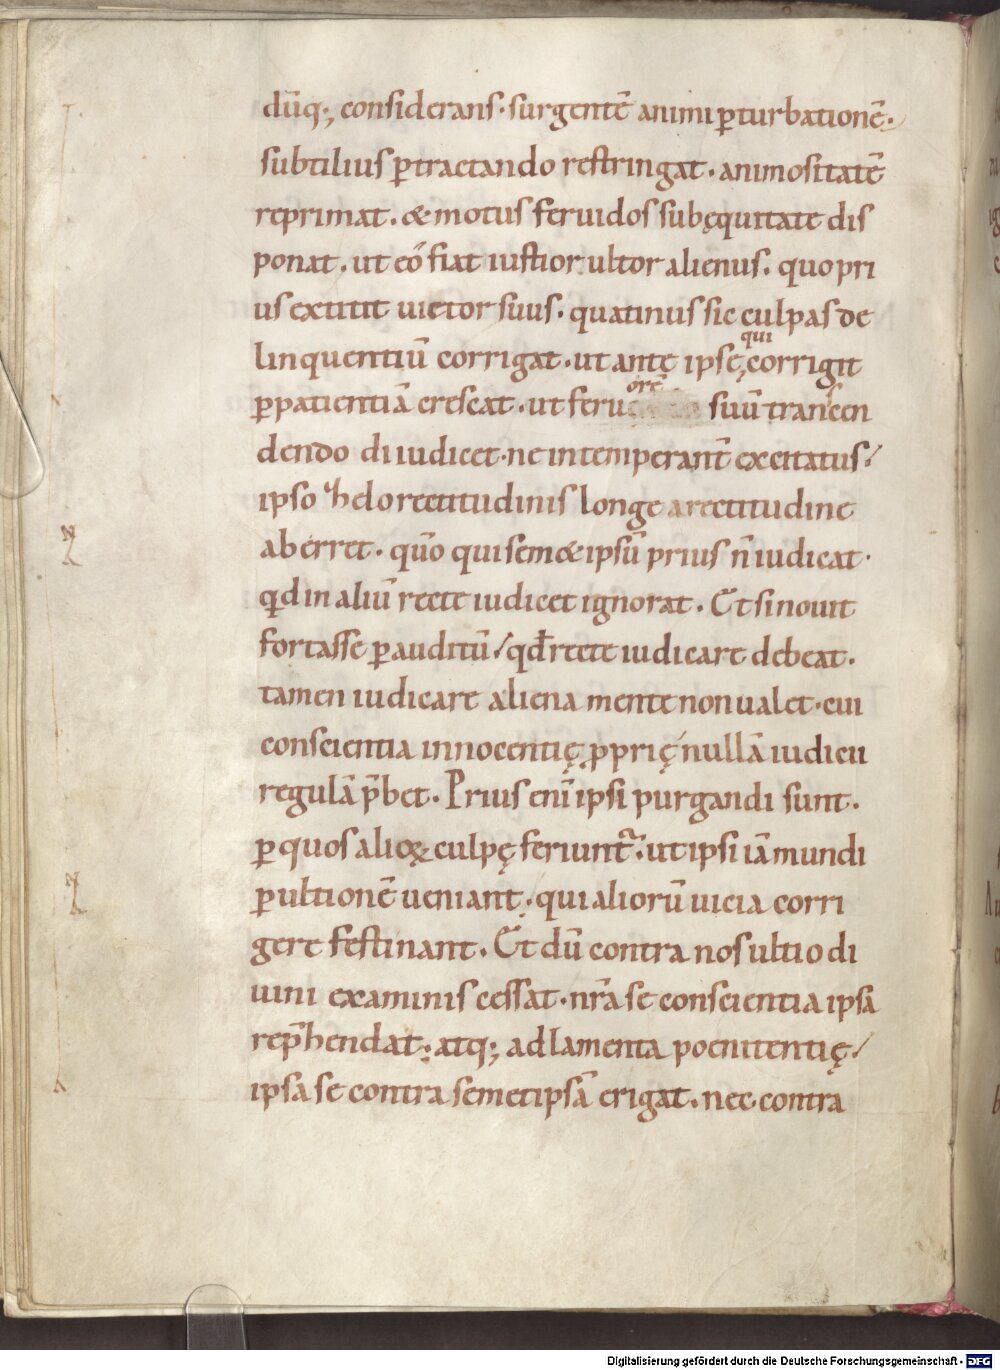 dūq; considerans· surgentē animi ꝑturbationē·
subtilius ꝑtractando restringat· animositatē
reprimat· & motus feruidos sub ęquitate dis
ponat· ut eo fiat iustior ultor alienus· quo pri
us extitit uictor suus· quatinus sic culpas de
linquentiū corrigat· ut ante ipse, qui corrigit
ꝑ patientiā crescat· ut feruorē suū transcen
dendo diiudicet· ne intemperant̄ excitatus/
ipso zhelo rectitudinis longe a rectitudine
aberret· quō qui sem&ipsū prius n̄ iudicat·
qd in aliū recte iudicet ignorat· Et si nouit
fortasse ꝑ auditū/ qd̄ recte iudicare debeat·
tamen iudicare aliena mente non ualet· cui
conscientia innocentię ꝓprię nullā iudicii
regulā p̄bet· Prius enī ipsi purgandi sunt·
ꝑ quos alioꝝ culpę feriunt᷑· ut ipsi iā mundi
ꝑ ultionē ueniant· qui aliorū uicia corri
gere festinant· Et dū contra nos ultio di
uini examinis cessat· nr̄a se conscientia ipsa
rep̄hendat· atq; ad lamenta poenitentię/
ipsa se contra semetipsā erigat· nec contra
Digitalisierung gefördert durch die Deutsche Forschungsgemeinschaft - DFG